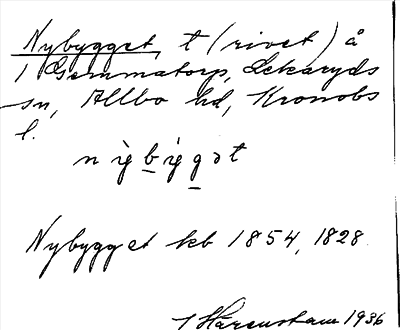 Nybygget, t (rivet) å
1 Gemmatorp, Lekaryds
sn, Allbo hd, Kronobs
l.
nỳbỳgət
Nybygget kb 1854, 1828
I Härenstam 1936